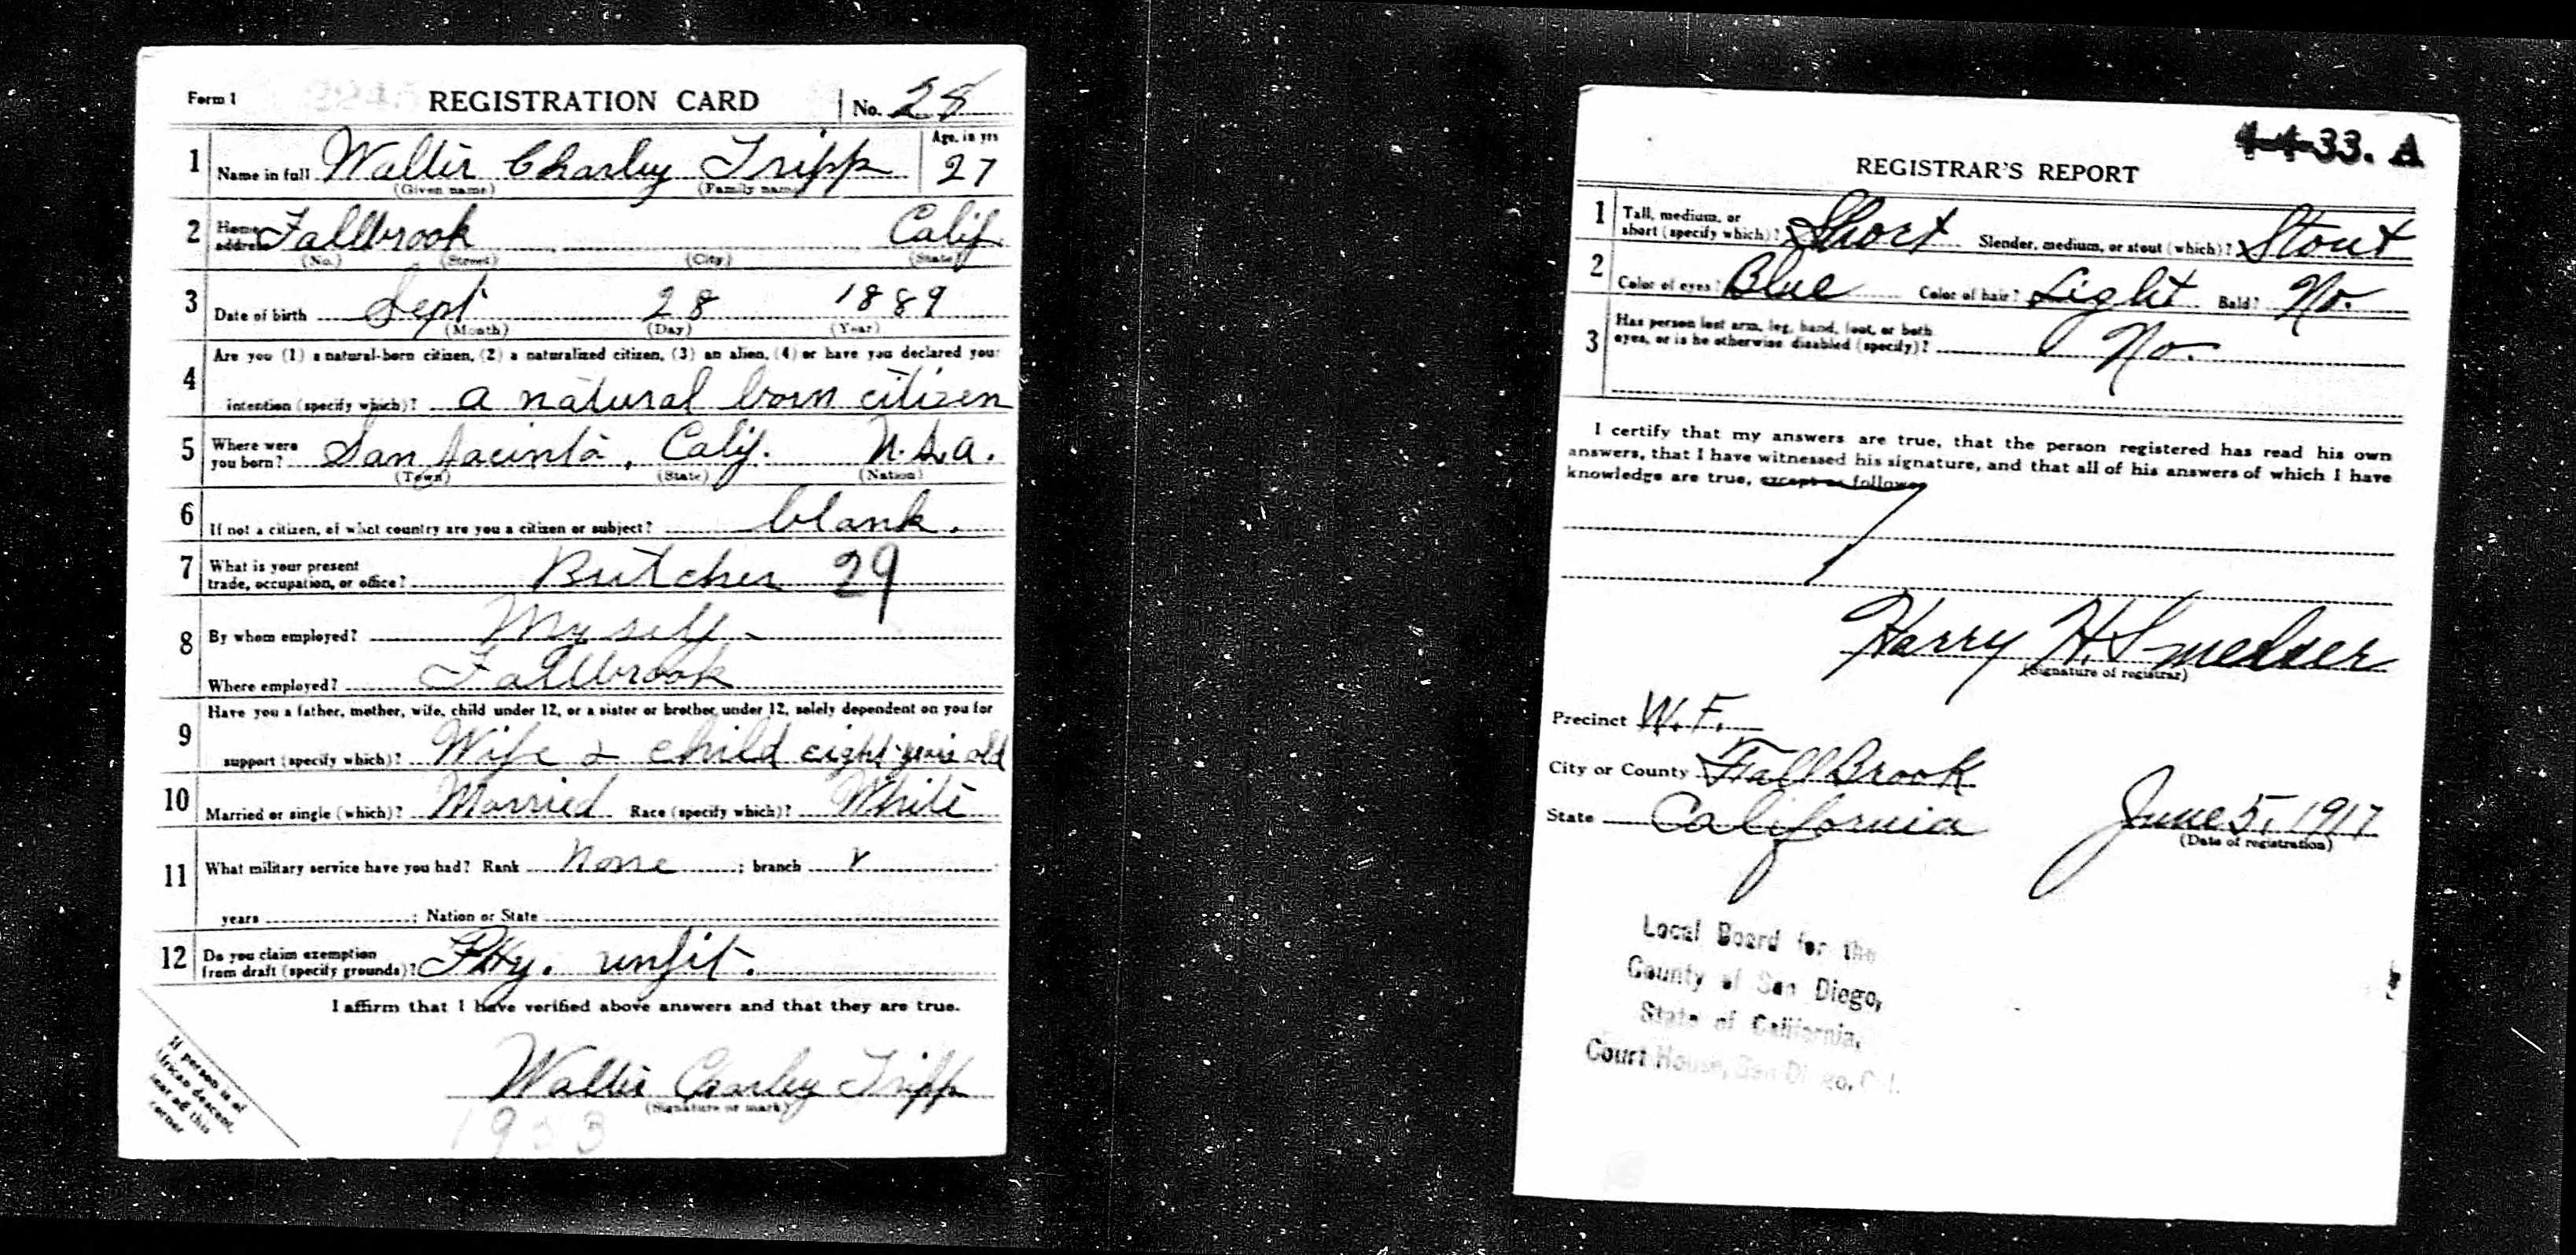 Form 1 REGISTRATION CARD No. 28
1 Name in full Walter Charley Tripp Age, in yrs 27
(Given name) (Family name)
2 Home address Fallbrook Calif.
(No.) (Street) (City) (State)
3 Date of birth Sept 28 1889
(Month) (Day) (Year)
4 Are you (1) a natural-born citizen, (2) a naturalized citizen, (3) an alien, (4) or have you declared your
intention (specify which)? a natural born citizen
5 Where were you born? San Jacinto, Calif. U.S.a.
(Town) (State) (Nation)
6 If not a citizen, of what country are you a citizen or subject? blank.
7 What is your present
trade, occupation, or office? Butcher 29
8 By whom employed? Myself
Where employed? Fallbrook
9 Have you a father, mother, wife, child under 12, or a sister or brother under 12, solely dependent on you for
support (specify which)? Wife & child eight years old
10 Married or single (which)? Married Race (specify which)? White
11 What military service have you had? Rank None ; branch
years ; Nation or State
12 Do you claim exemption
from draft (specify grounds)? Phy. unfit.
I affirm that I have verified above answers and that they are true.
Walter Charley Tripp
(Signature or mark)
If person is of
African descent,
tear off this
corner
4-4-33. A
REGISTRAR'S REPORT
1 Tall, medium, or
short (specify which)? Short Slender, medium, or stout (which)? Stout
2 Color of eyes? Blue Color of hair? Light Bald? No.
3 Has person lost arm, leg, hand, foot, or both
eyes, or is he otherwise disabled (specify)? No.
I certify that my answers are true, that the person registered has read his own
answers, that I have witnessed his signature, and that all of his answers of which I have
knowledge are true, except as follows
Harry H. Smelser
(Signature of registrar)
Precinct W. F.
City or County FallBrook
State California June 5, 1917
(Date of registration)
Local Board for the
County of San Diego,
State of California,
Court House, San Diego, Cal.